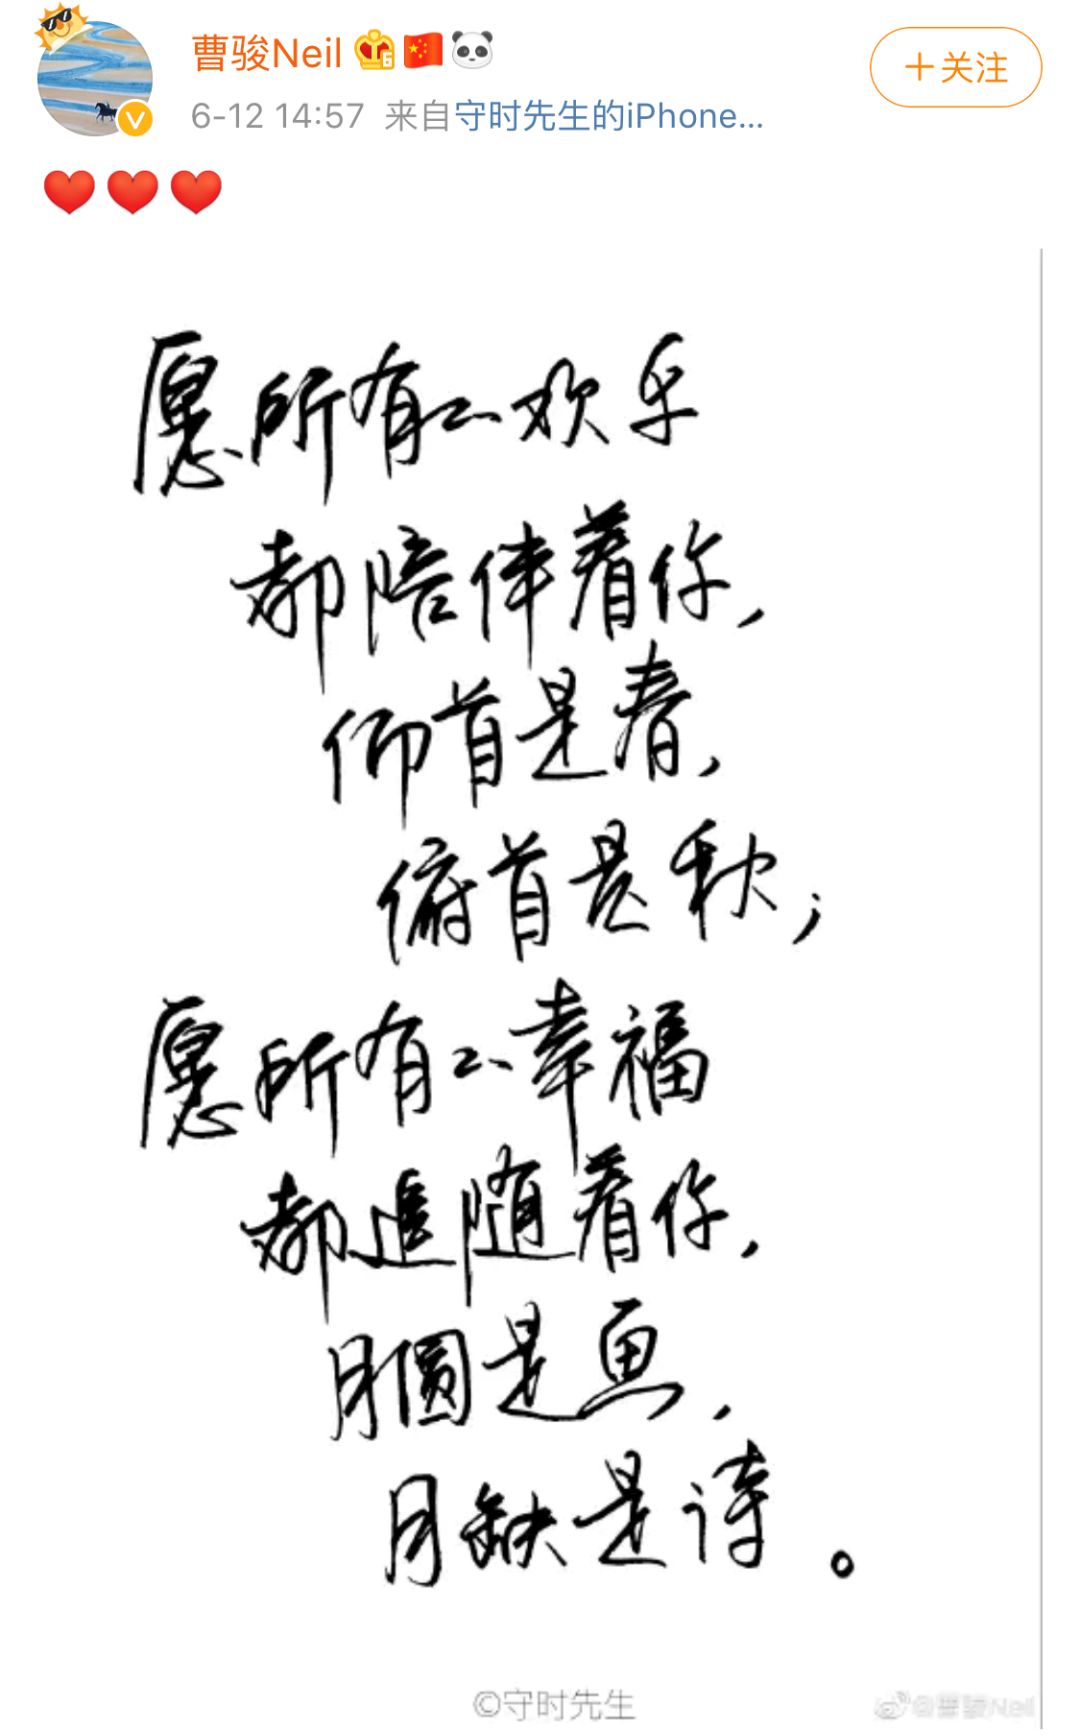 曹骏Neil
6-12 14:57 来自守时先生的iPhone...
+关注
愿所有的欢乐
都陪伴着你,
仰首是春,
俯首是秋;
愿所有的幸福
都追随着你,
月圆是画,
月缺是诗。
©守时先生
@曹骏Neil